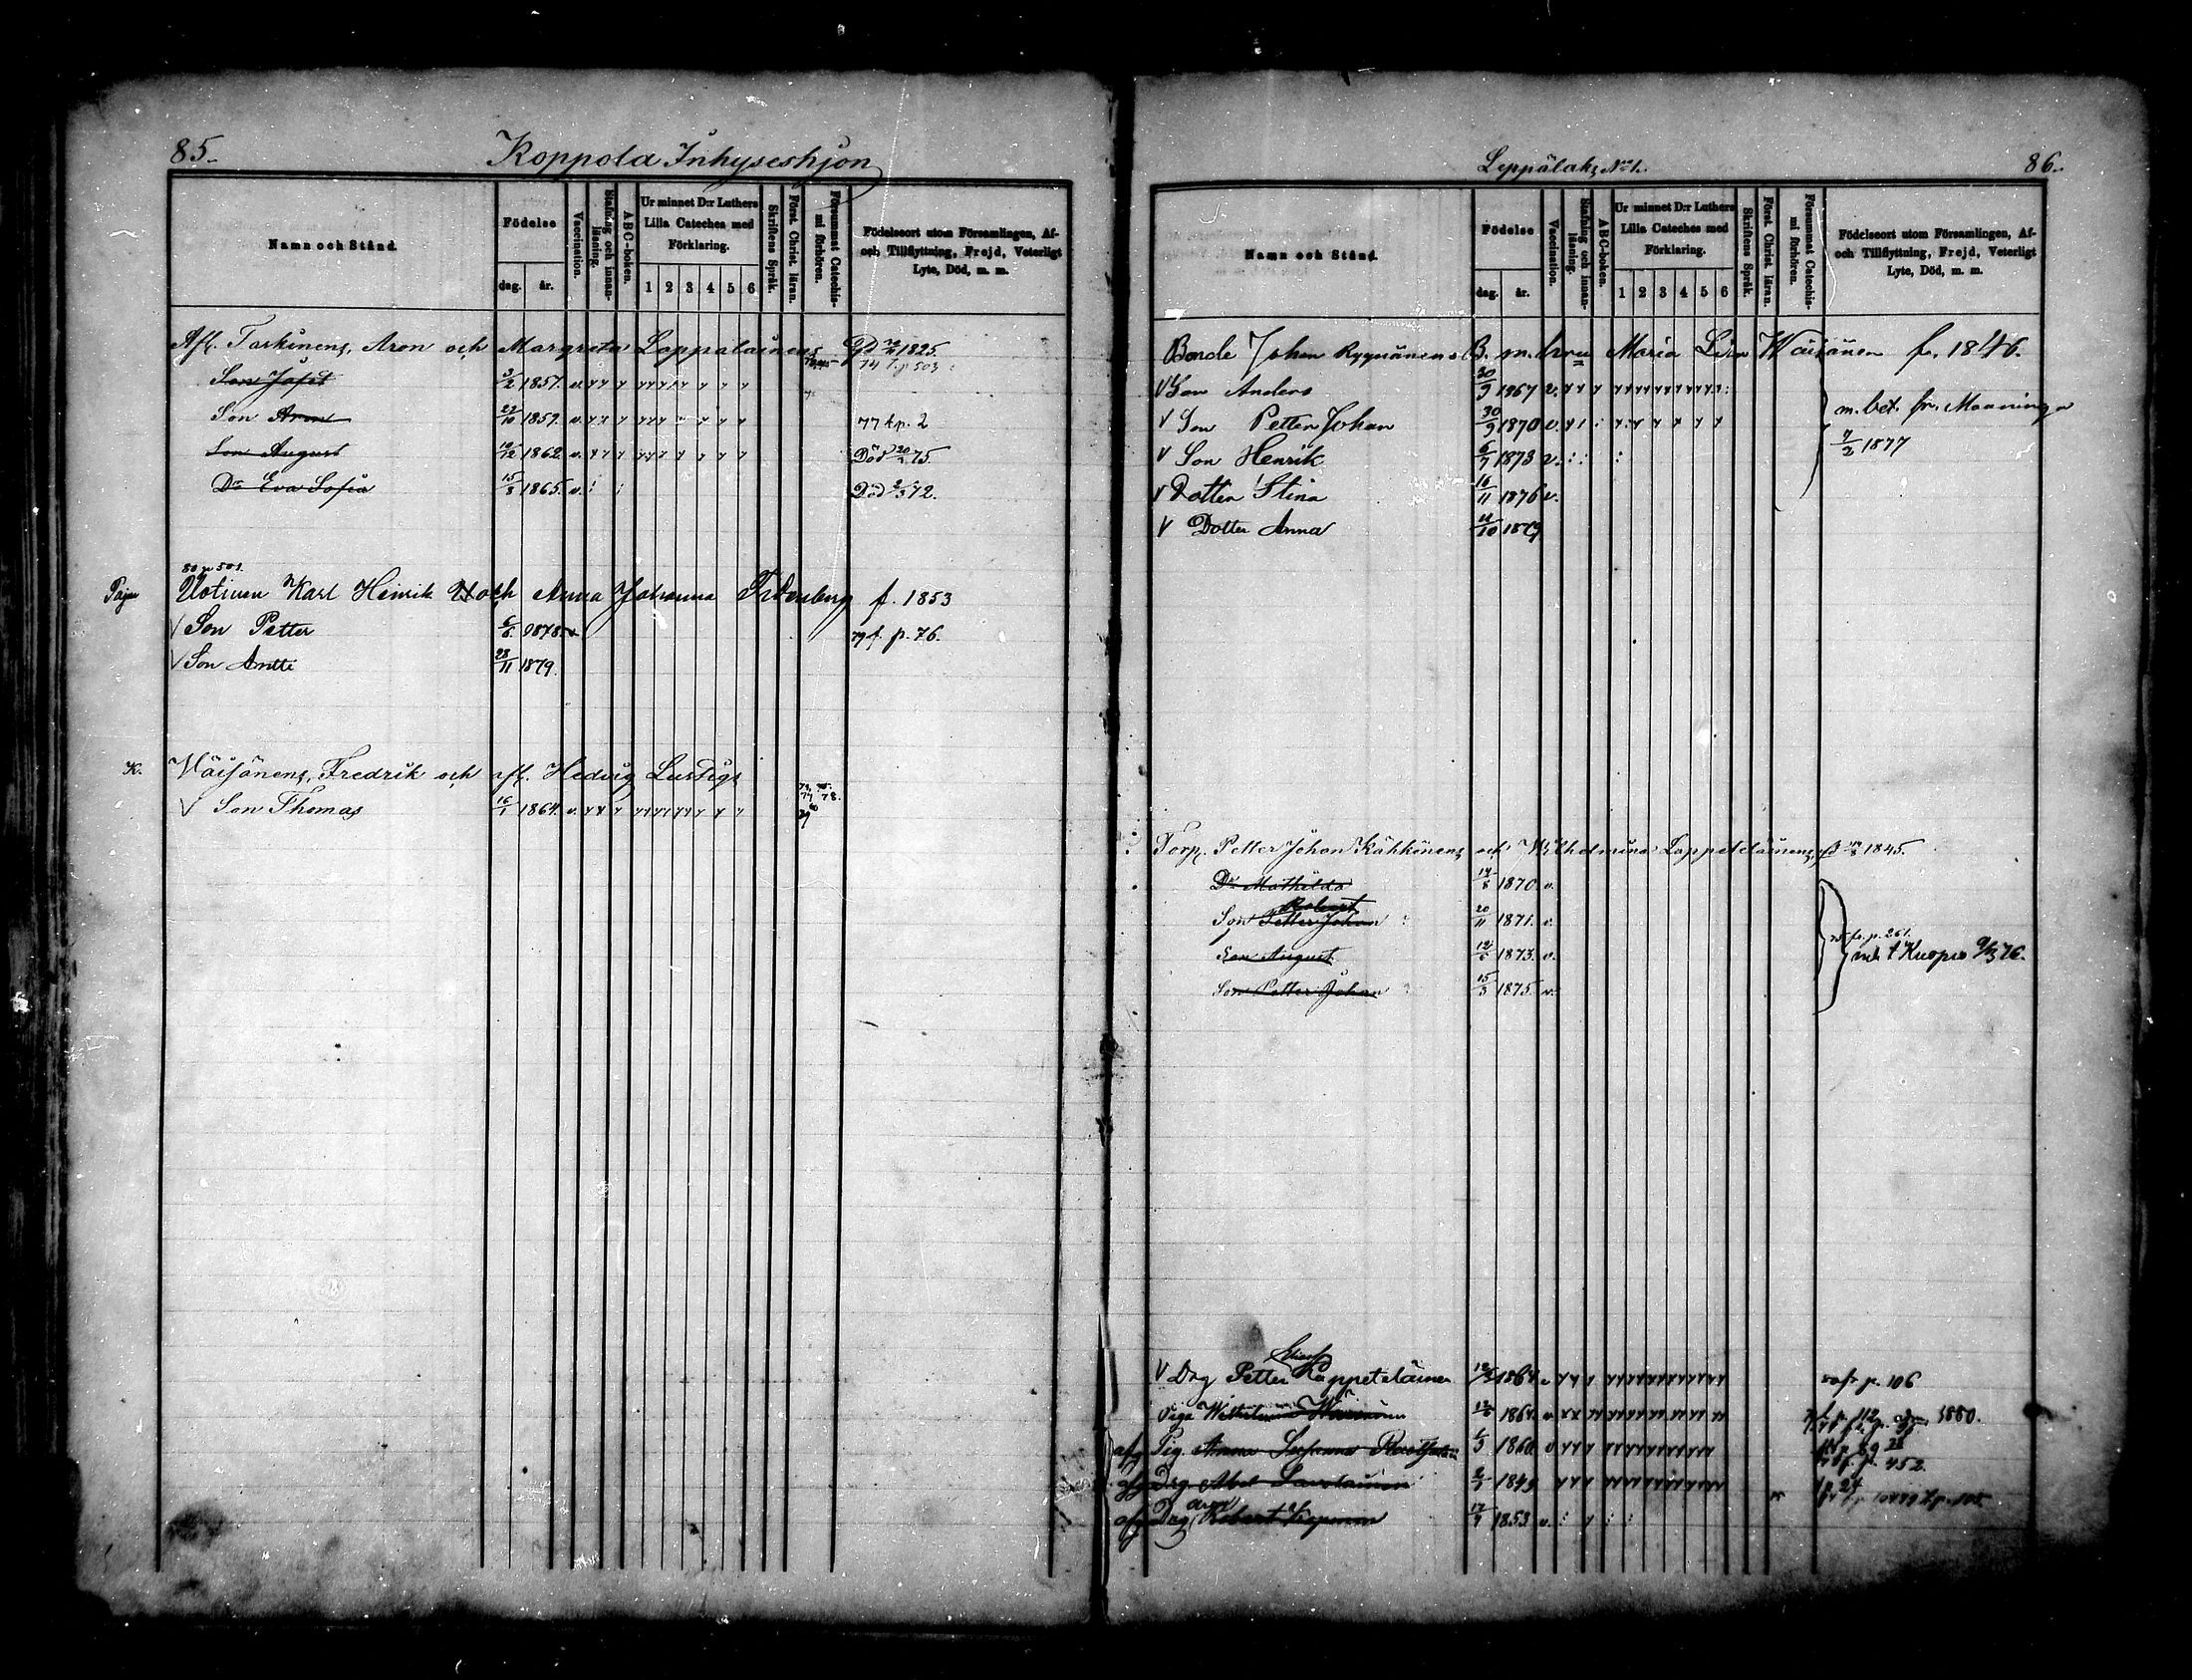 85.
Koppola Inhyseshjon
Namn och Stånd.
Födelse
dag. år.
Vaccination.
Stafning och innanläsning.
ABC-boken.
Ur minnet D:r Luthers Lilla Cateches med Förklaring.
1 2 3 4 5 6
Skriftens Språk.
Först. Christ. läran.
Försummat Catechismi förhören.
Födelseort utom Församlingen, Af- och Tillflyttning, Frejd, Veterligt Lyte, Död, m. m.
Afl. Tarkinens, Aron och Margreta Lappalainens 1825.
Son Josef 3/2 1857. v. 74 f. p 503
Son Aron 22/10 1859. v. 77 f. p. 2
Son August 12/12 1862. v. Död 20/2 75.
Dr Eva Sofia 15/3 1865. v. Död 2/3 72.
80 p 501.
Uotinen Karl Henrik och Anna Johanna f. 1853
V Son Petter 6/6 1878. v 79 f. p. 76.
V Son Antti 28/11 1879.
K. Wäisänens, Fredrik och afl. Hedvig Lustigs
V Son Thomas 16/1 1864. v.
86.
Leppälaks No 1.
Namn och Stånd.
Födelse
dag. år.
Vaccination.
Stafning och innanläsning.
ABC-boken.
Ur minnet D:r Luthers Lilla Cateches med Förklaring.
1 2 3 4 5 6
Skriftens Språk.
Först. Christ. läran.
Försummat Catechismi förhören.
Födelseort utom Församlingen, Af- och Tillflyttning, Frejd, Veterligt Lyte, Död, m. m.
Bonde Johan Ryynänens B. m. hru Maria Lisa Wäisänen f. 1846.
V Son Anders 30/9 1867 v.
V Son Petter Johan 30/9 1870 v. m. bet. fr. Maaninga
V Son Henrik 6/7 1873 v. 7/2 1877
V Dotter Stina 16/11 1876 v.
V Dotter Anna 11/10 1879
Torp. Petter Johan Kähkönens och Wilhelmina Lappeteläinens, 1845.
Dr Mathilda 14/8 1870. v.
Robert
Son Petter Johan 20/11 1871. v.
fr. p. 261.
Son August 12/6 1873. v. t Kuopio 9/3 76.
Son Petter Johan 15/3 1875. v.
V Drg Petter Lappeteläinen 1864. v p. 106
Piga Wilhelmina 12/6 1864. v p. 112 1880.
afg Pig. Anna Susanna 1/3 1860. v
afg Drg Abel 2/3 1849 p. 452.
p. 24
afg Drg Robert 17/9 1853 v. p. 105